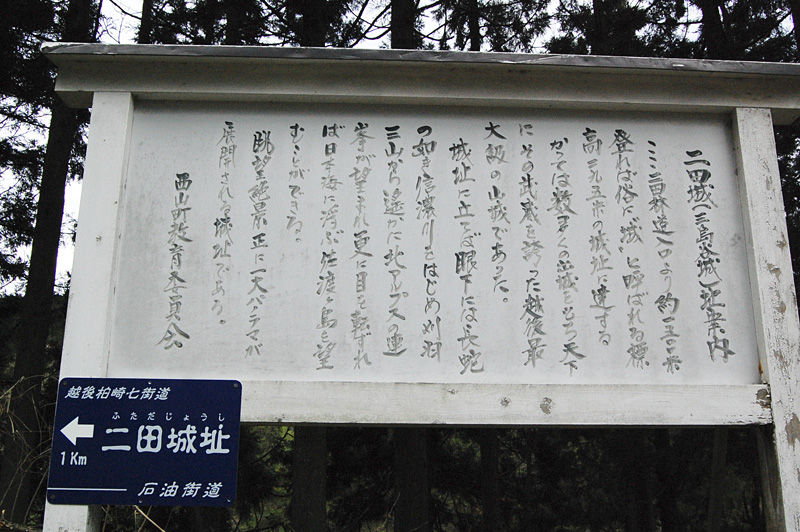 二田城(三島谷城)址案内
ここ二田林道入口より約一五〇〇米
登れば俗に城と呼ばれる標
高三九五米の城址に達する
かつては数多くの出城をもち天下
にその武威を誇った越後最
大級の山城であった。
城址に立てば眼下には長蛇
の如き信濃川をはじめ刈羽
三山から遥かに北アルプスの連
峯が望まれ更に目を転ずれ
ば日本海に浮ぶ佐渡ヶ島を望
むことができる。
眺望絶景正に一大パノラマが
展開される城址であろう。
西山町教育委員会
越後柏崎七街道
ふただじょうし
二田城址
1Km
石油街道